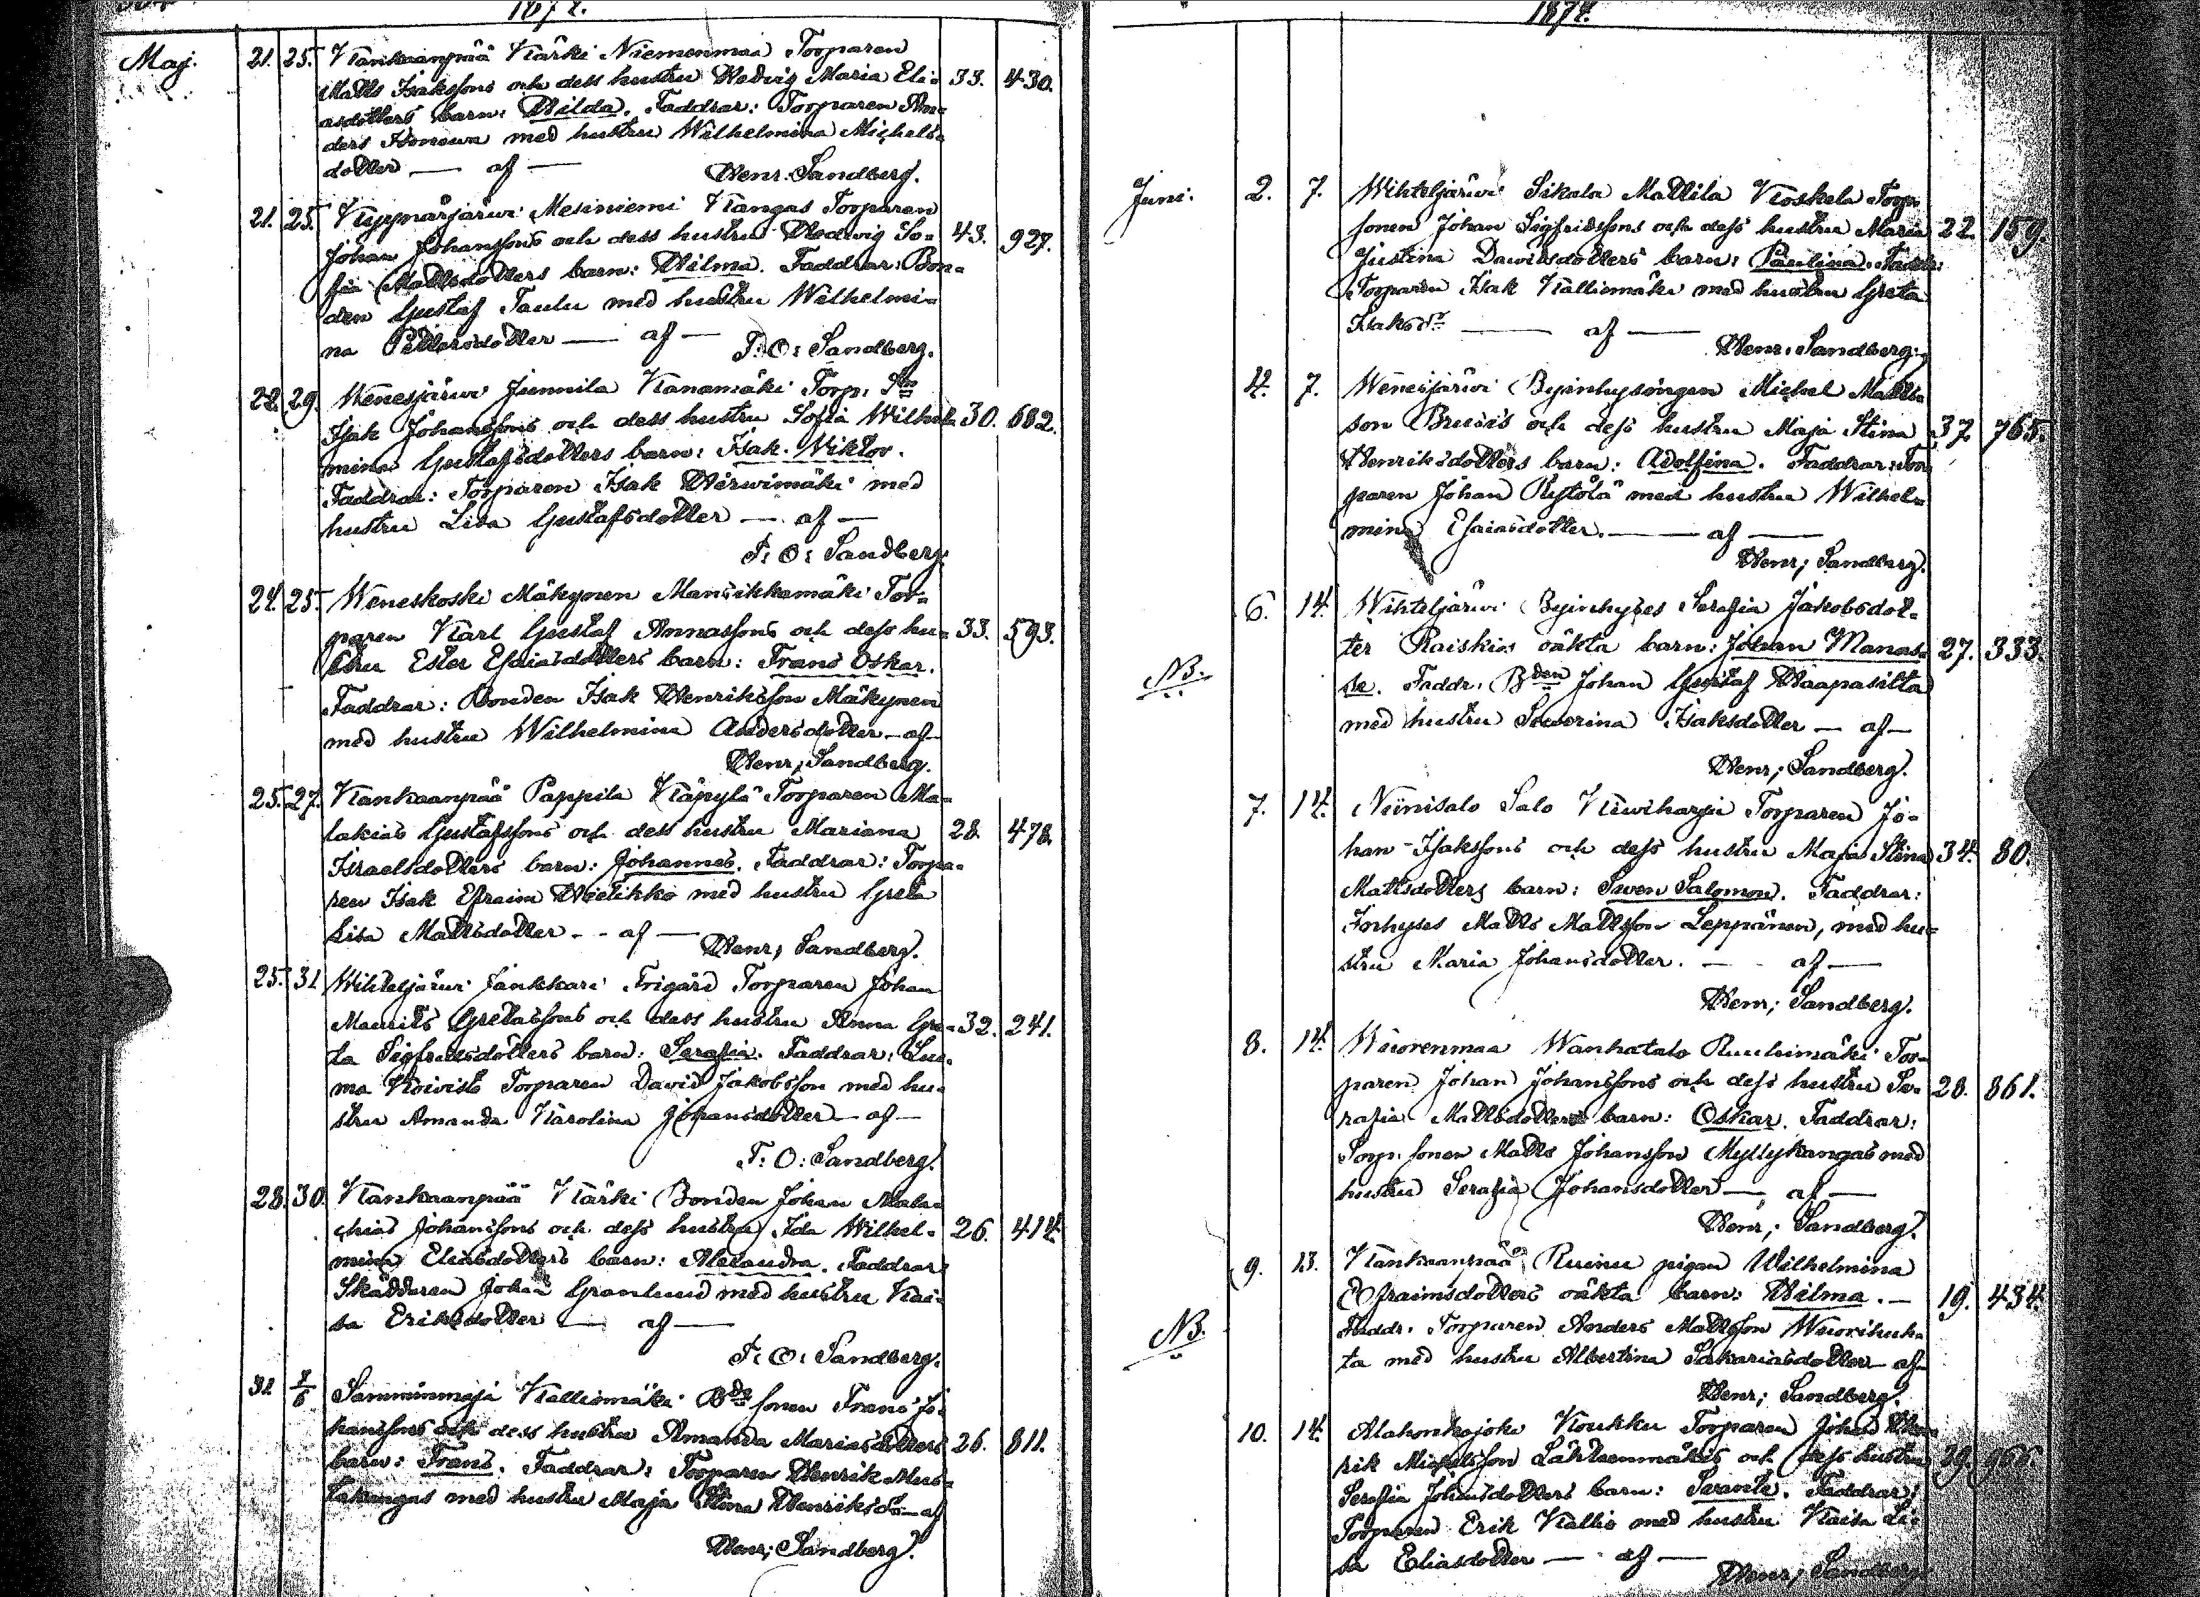 1874.
Maj. 21. 25. Kankaanpää Kärki Niemenmaa Torparen
Matts Isakssons och dess hustru Hedvig Maria Eli- 33. 430.
asdotters barn: Hilda. Faddrar: Torparen An-
ders Honowa med hustru Wilhelmina Michels-
dotter — af —
Henr. Sandberg.
21. 25. Kyynärjärwi Mesiniemi Kangas Torparen
Johan Johanssons och dess hustru Hedwig So- 43. 927.
fia Mattsdotters barn: Hilma. Faddrar: Bon-
den Gustaf Taulu med hustru Wilhelmi-
na Pettersdotter — af —
F: O: Sandberg.
22. 29. Wenesjärwi Junnila Kanamäki Torp. Sn
Isak Johanssons och dess hustru Sofia Wilhel- 30. 682.
mina Gustafsdotters barn: Isak Wiktor.
Faddrar: Torparen Isak Hirwimäki med
hustru Lisa Gustafsdotter — af —
F: O: Sandberg.
24. 25. Weneskoski Mäkynen Mansikkamäki Tor-
paren Karl Gustaf Annassons och dess hu- 33. 593.
stru Ester Esaiasdotters barn: Frans Oskar.
Faddrar: Bonden Isak Henriksson Mäkynen
med hustru Wilhelmina Andersdotter — af —
Henr; Sandberg.
25. 27. Kankaanpää Pappila Käpylä Torparen Ma-
lakias Gustafssons och dess hustru Mariana 28. 478.
Israelsdotters barn: Johannes. Faddrar: Torpa-
ren Isak Efraim Hietikko med hustru Greta
Lisa Mattsdotter - - af —
Henr; Sandberg.
25. 31 Wihteljärwi Jänkkäri Frigård Torparen Johan
Maurits Gretassons och dess hustru Anna Gre- 32. 241.
ta Sigfredsdotters barn: Serafia. Faddrar: Luo-
ma Koivisto Torparen David Jakobsson med hu-
stru Amanda Karolina Johansdotter — af —
F: O: Sandberg.
28. 30. Kankaanpää Kärki Bonden Johan Mala-
chias Johanssons och dess hustru Ida Wilhel- 26. 414.
mina Eliasdotters barn: Alexandra. Faddrar:
Skäddaren Johan Granlund med hustru Kai-
sa Eriksdotter — af —
F: O: Sandberg.
31 7/6 Samminmaja Kalliomäki Bde sonen Frans Jo-
hanssons och dess hustru Amanda Mariasdotters 26. 811.
barn: Frans. Faddrar: Torparen Henrik Mus-
takangas med hustru Maja Stina Henriksd: — af
Henr; Sandberg.
1874.
Juni. 2. 7. Wihteljärwi Sikala Mattila Koskela Torp.
sonen Johan Sigfridssons och dess hustru Maria 22. 159.
Justina Dawidsdotters barn: Paulina. Faddr:
Torparen Isak Kalliomäki med hustru Greta
Isaksdr — af —
Henr. Sandberg.
4. 7. Wenesjärwi Byinhysingen Michel Matts-
son Brusis och dess hustru Maja Stina 37. 765.
Henriksdotters barn: Adolfina. Faddrar: Tor-
paren Johan Rystölä med hustru Wilhel-
mina Esaiasdotter. — af —
Henr; Sandberg.
6. 14. Wihteljärwi Byinhyses Serafia Jakobsdot-
ter Raiskios oäkta barn: Johan Manas- 27. 333.
NB. se. Faddr. Bden Johan Gustaf Haapasilta
med hustru Sewerina Isaksdotter — af —
Henr; Sandberg.
7. 14. Niinisalo Salo Kiwiharju Torparen Jo-
han Isakssons och dess hustru Maja Stina 34. 80.
Mattsdotters barn: Swen Salomon. Faddrar:
Inhyses Matts Mattsson Leppänen, med hu-
stru Maria Johansdotter. — af —
Henr; Sandberg.
8. 14. Wuorenmaa Wanhatalo Ruuhimäki Tor-
paren Johan Johanssons och dess hustru Se- 28. 861.
rafia Mattsdotters barn: Oskar. Faddrar:
Torp. sonen Matts Johansson Myllykangas med
hustru Serafia Johansdotter — af —
Henr; Sandberg.
9. 13. Kankaanpää Ruinu pigan Wilhelmina
Efraimsdotters oäkta barn: Hilma. — 19. 434.
NB. Faddr. Torparen Anders Mattsson Wuorihuh-
ta med hustru Albertina Sakariasdotter — af —
Henr; Sandberg.
10. 14. Alahonkajoki Koukku Torparen Johan Hen-
rik Michelsson Lähteenmäkis och dess hustru 39. 966.
Serafia Johansdotters barn: Serante. Faddrar:
Torparen Erik Kallio med hustru Kaisa Li-
sa Eliasdotter — af —
Henr; Sandberg.